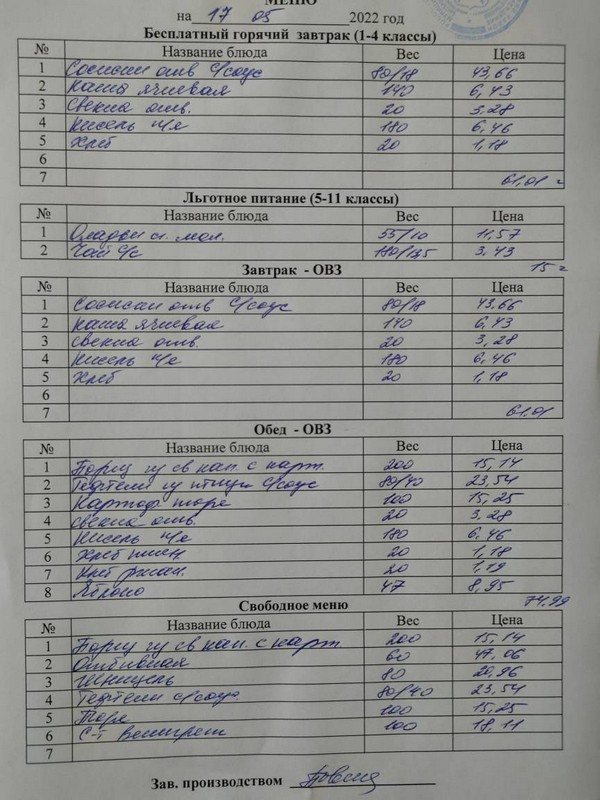 МЕНЮ
на 17 05 2022 год
Бесплатный горячий завтрак (1-4 классы)
№ Название блюда Вес Цена
1 Сосиски отв с/соус 80/18 43,66
2 каша ячневая 140 6,43
3 свекла отв. 20 3,28
4 кисель 180 6,46
5 хлеб 20 1,18
6
7 61,01
Льготное питание (5-11 классы)
№ Название блюда Вес Цена
1 Оладьи с. мол. 55/10 11,57
2 Чай с/с 180/135 3,43
15
Завтрак - ОВЗ
№ Название блюда Вес Цена
1 Сосиски отв с/соус 80/18 43,66
2 каша ячневая 140 6,43
3 свекла отв. 20 3,28
4 кисель 180 6,46
5 хлеб 20 1,18
6
7 61,01
Обед - ОВЗ
№ Название блюда Вес Цена
1 Борщ св кап. с карт. 200 15,14
2 Тефтели птицы с/соус 80/40 23,54
3 Картоф пюре 100 15,25
4 свекла отв. 20 3,28
5 кисель 180 6,46
6 хлеб пшен 20 1,18
7 хлеб ржан. 20 1,19
8 Яблоко 47 8,95
74,99
Свободное меню
№ Название блюда Вес Цена
1 Борщ св кап. с карт. 200 15,14
2 Отбивная 60 47,06
3 Шницель 80 20,96
4 Тефтели с/соус 80/40 23,54
5 Пюре 100 15,25
6 С-т Винегрет 100 18,11
7
Зав. производством